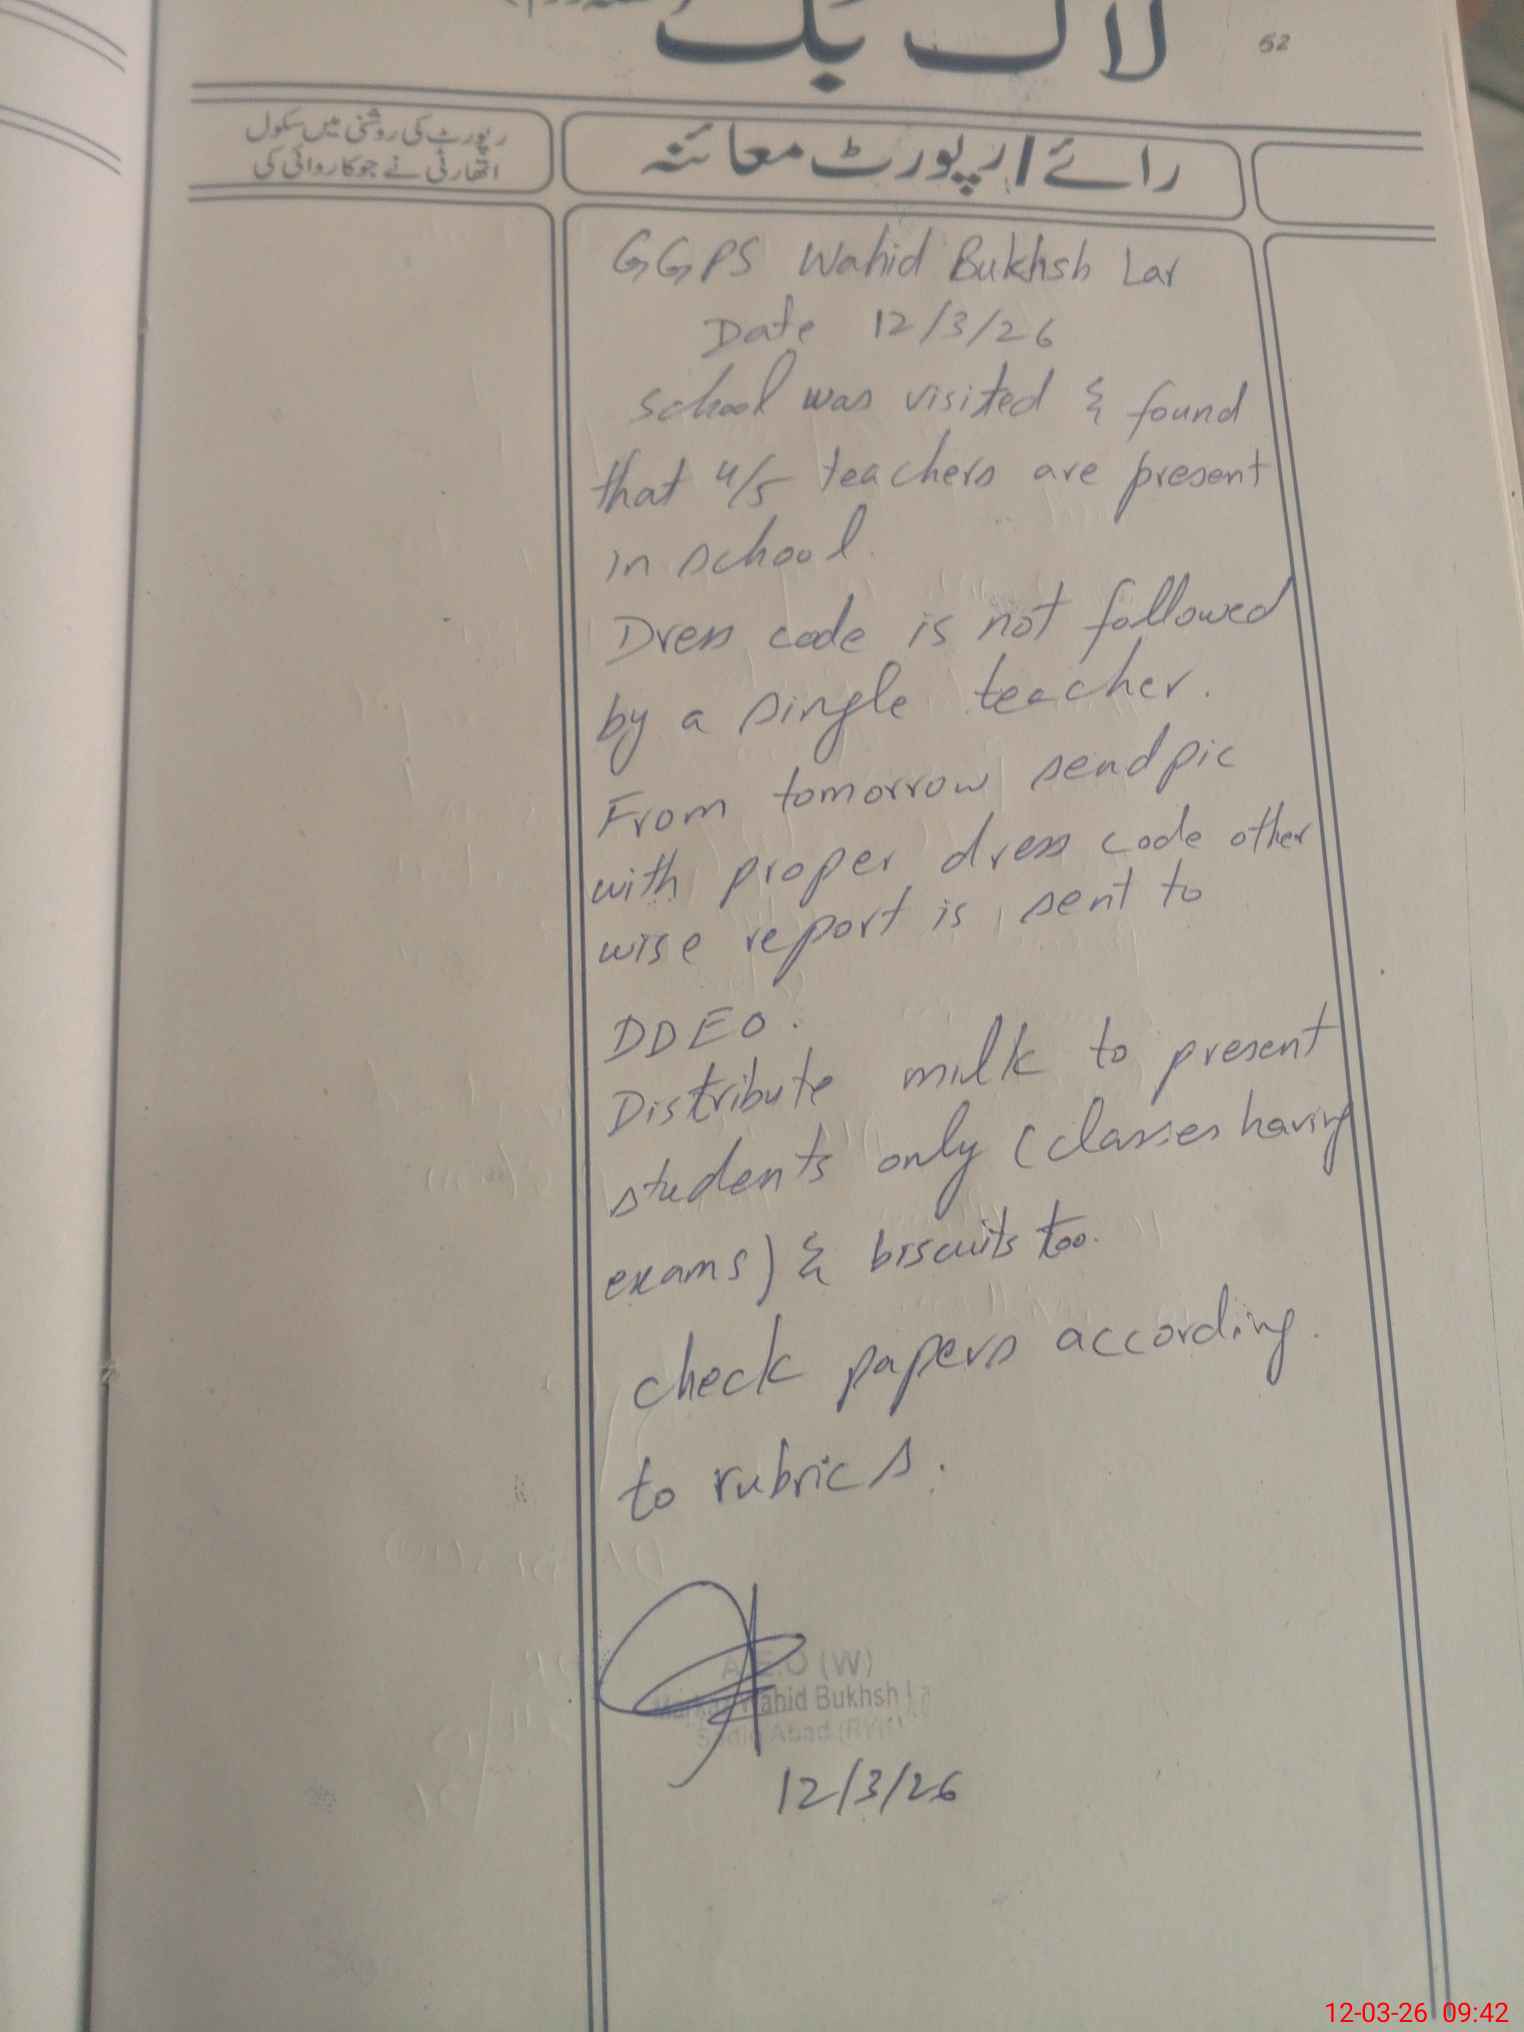 لاگ بک
52
رپورٹ کی روشنی میں سکول
اتھارٹی نے جو کاروائی کی
رائے / رپورٹ معائنہ
GGPS Wahid Bukhsh Lar
Date 12/3/26
school was visited & found
that 4/5 teachers are present
in school.
Dress code is not followed
by a single teacher.
From tomorrow send pic
with proper dress code other
wise report is sent to
DDEO.
Distribute milk to present
students only (classes having
exams) & biscuits too.
check papers according.
to rubrics.
A.E.O (W)
Markaz Wahid Bukhsh La
Sadiq Abad (RYK)
12/3/26
12-03-26 09:42